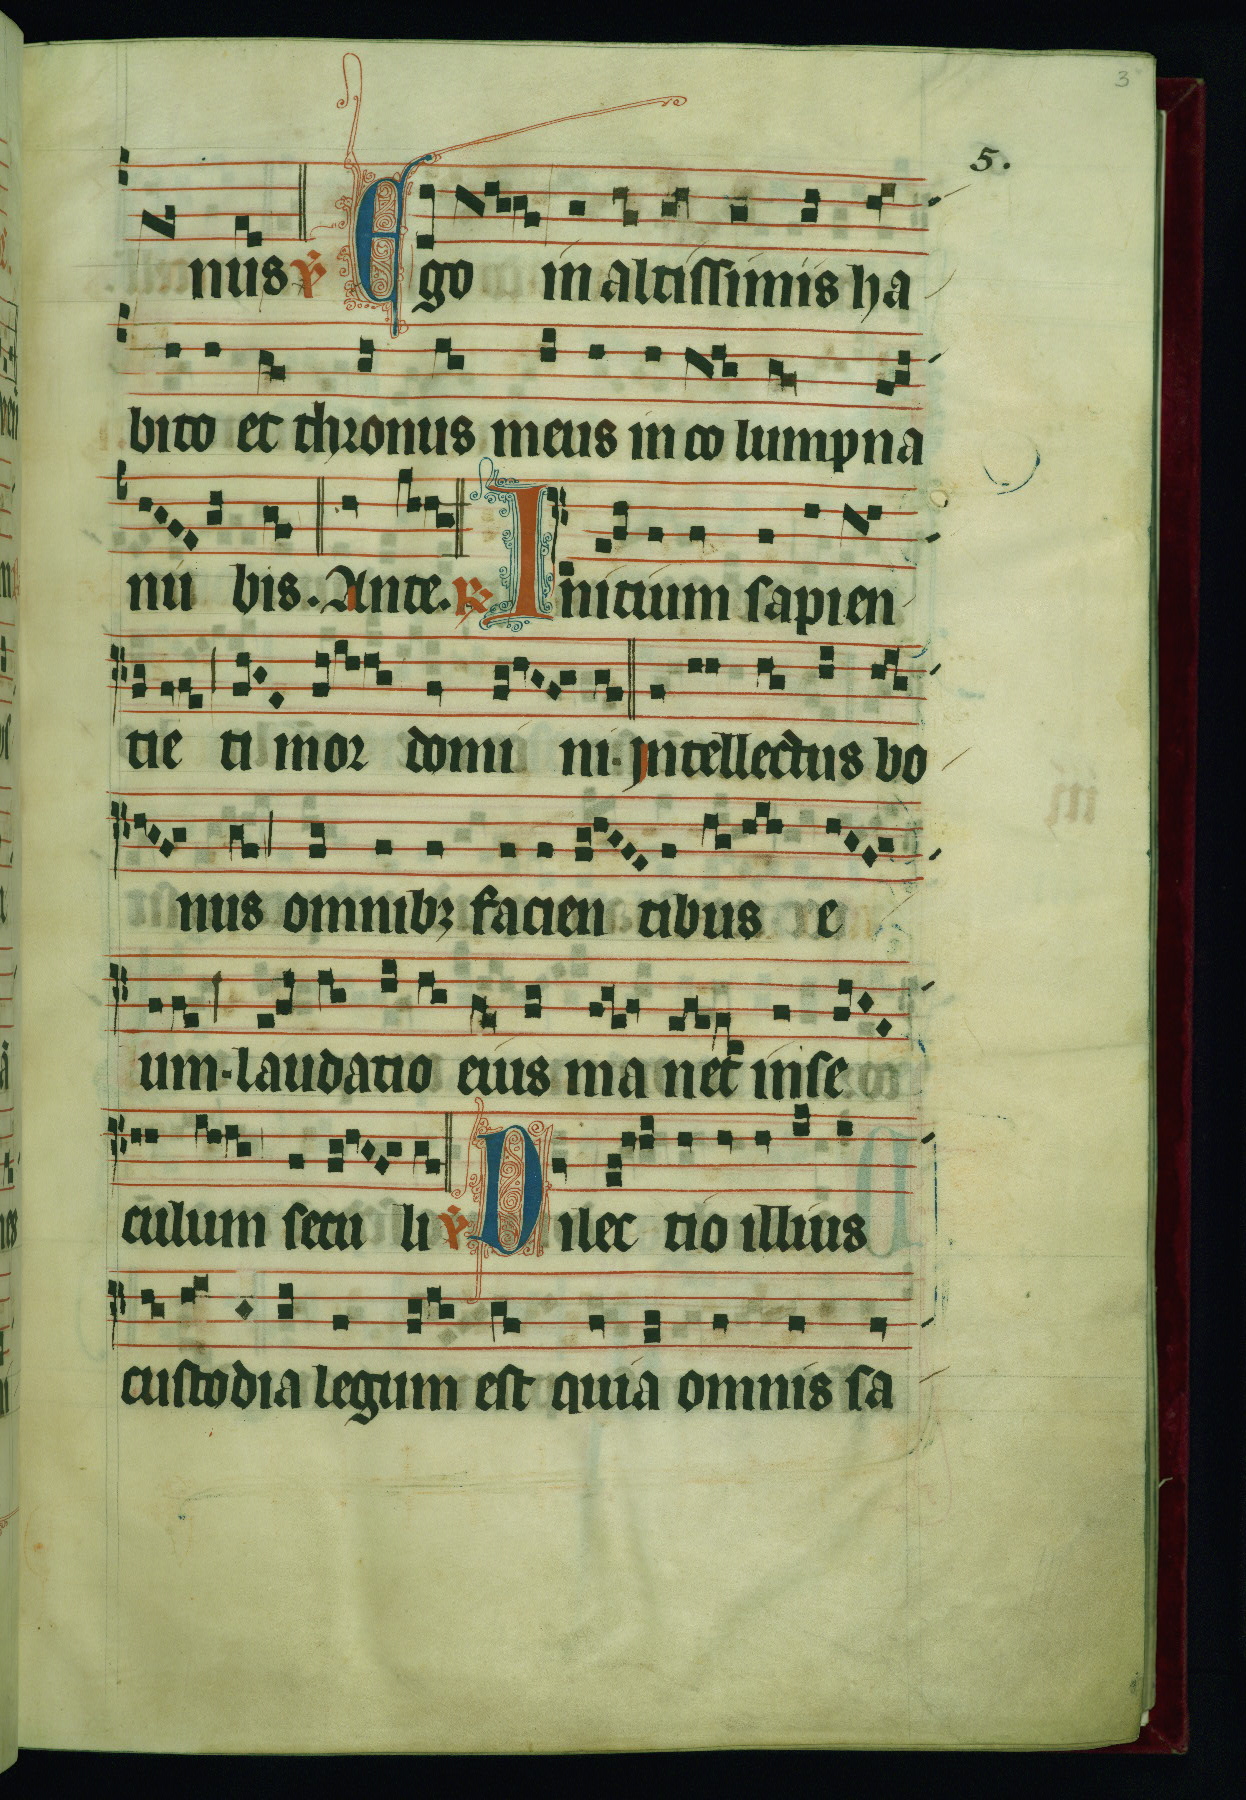 3
5.
nus ℣ Ego in altissimis ha
bito et thronus meus in co lumpna
nu bis. Ante. ℟ Initium sapien
tie ti mor domi ni. Intellectus bo
nus omnibꝫ facien tibus e
um. laudatio eius ma net inse
culum secu li ℣ Dilec tio illius
custodia legum est quia omnis sa